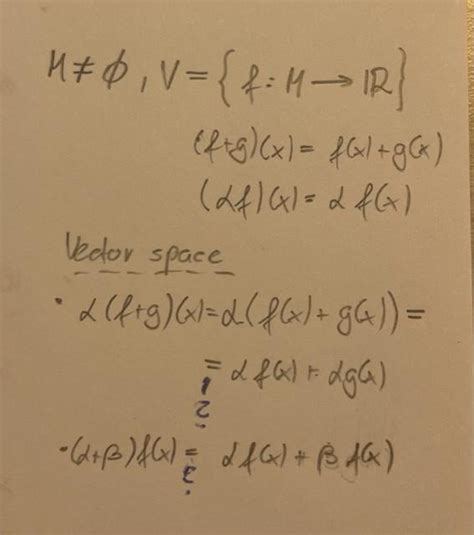 M ≠ ∅, V = { f : M → ℝ }
(f+g)(x) = f(x) + g(x)
(αf)(x) = α f(x)
Vector space
• α(f+g)(x) = α(f(x) + g(x)) =
= α f(x) + αg(x)
?
• (α+β)f(x) = α f(x) + β f(x)
?